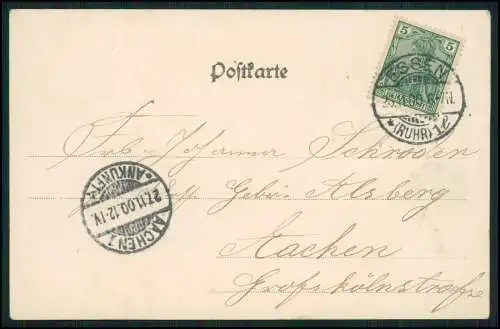 5 5
ESSEN
*(RUHR)12
Postkarte
Frl. Johanna Schröder
Gebr. Alsberg
AACHEN 1
27.11.00.12-1V.
*ANKUNFT*
Aachen
Großkölnstraße